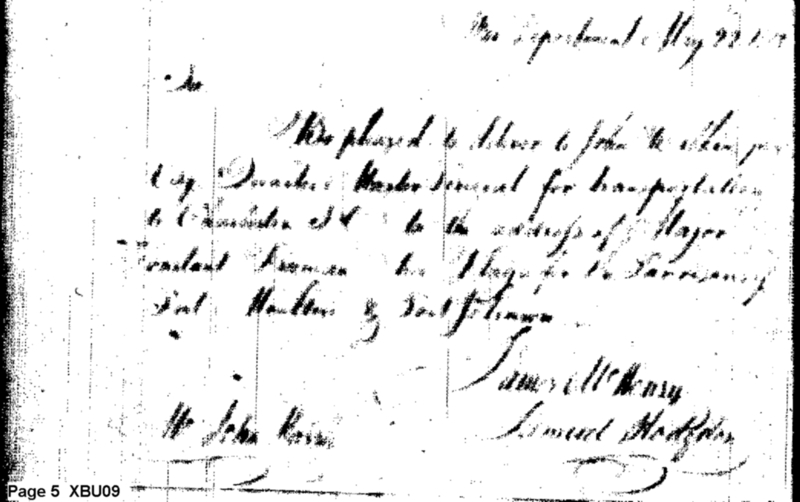 War Department May 22
Sir
Be pleased to deliver to John
Esq. Quarter Master General for transportation
to Charleston S C to the address of Major
Constant Freeman two Flags for the Garrisons of
Fort Moultrie & Fort Johnson
James McHenry
Mr John Samuel Hodgdon
Page 5 XBU09